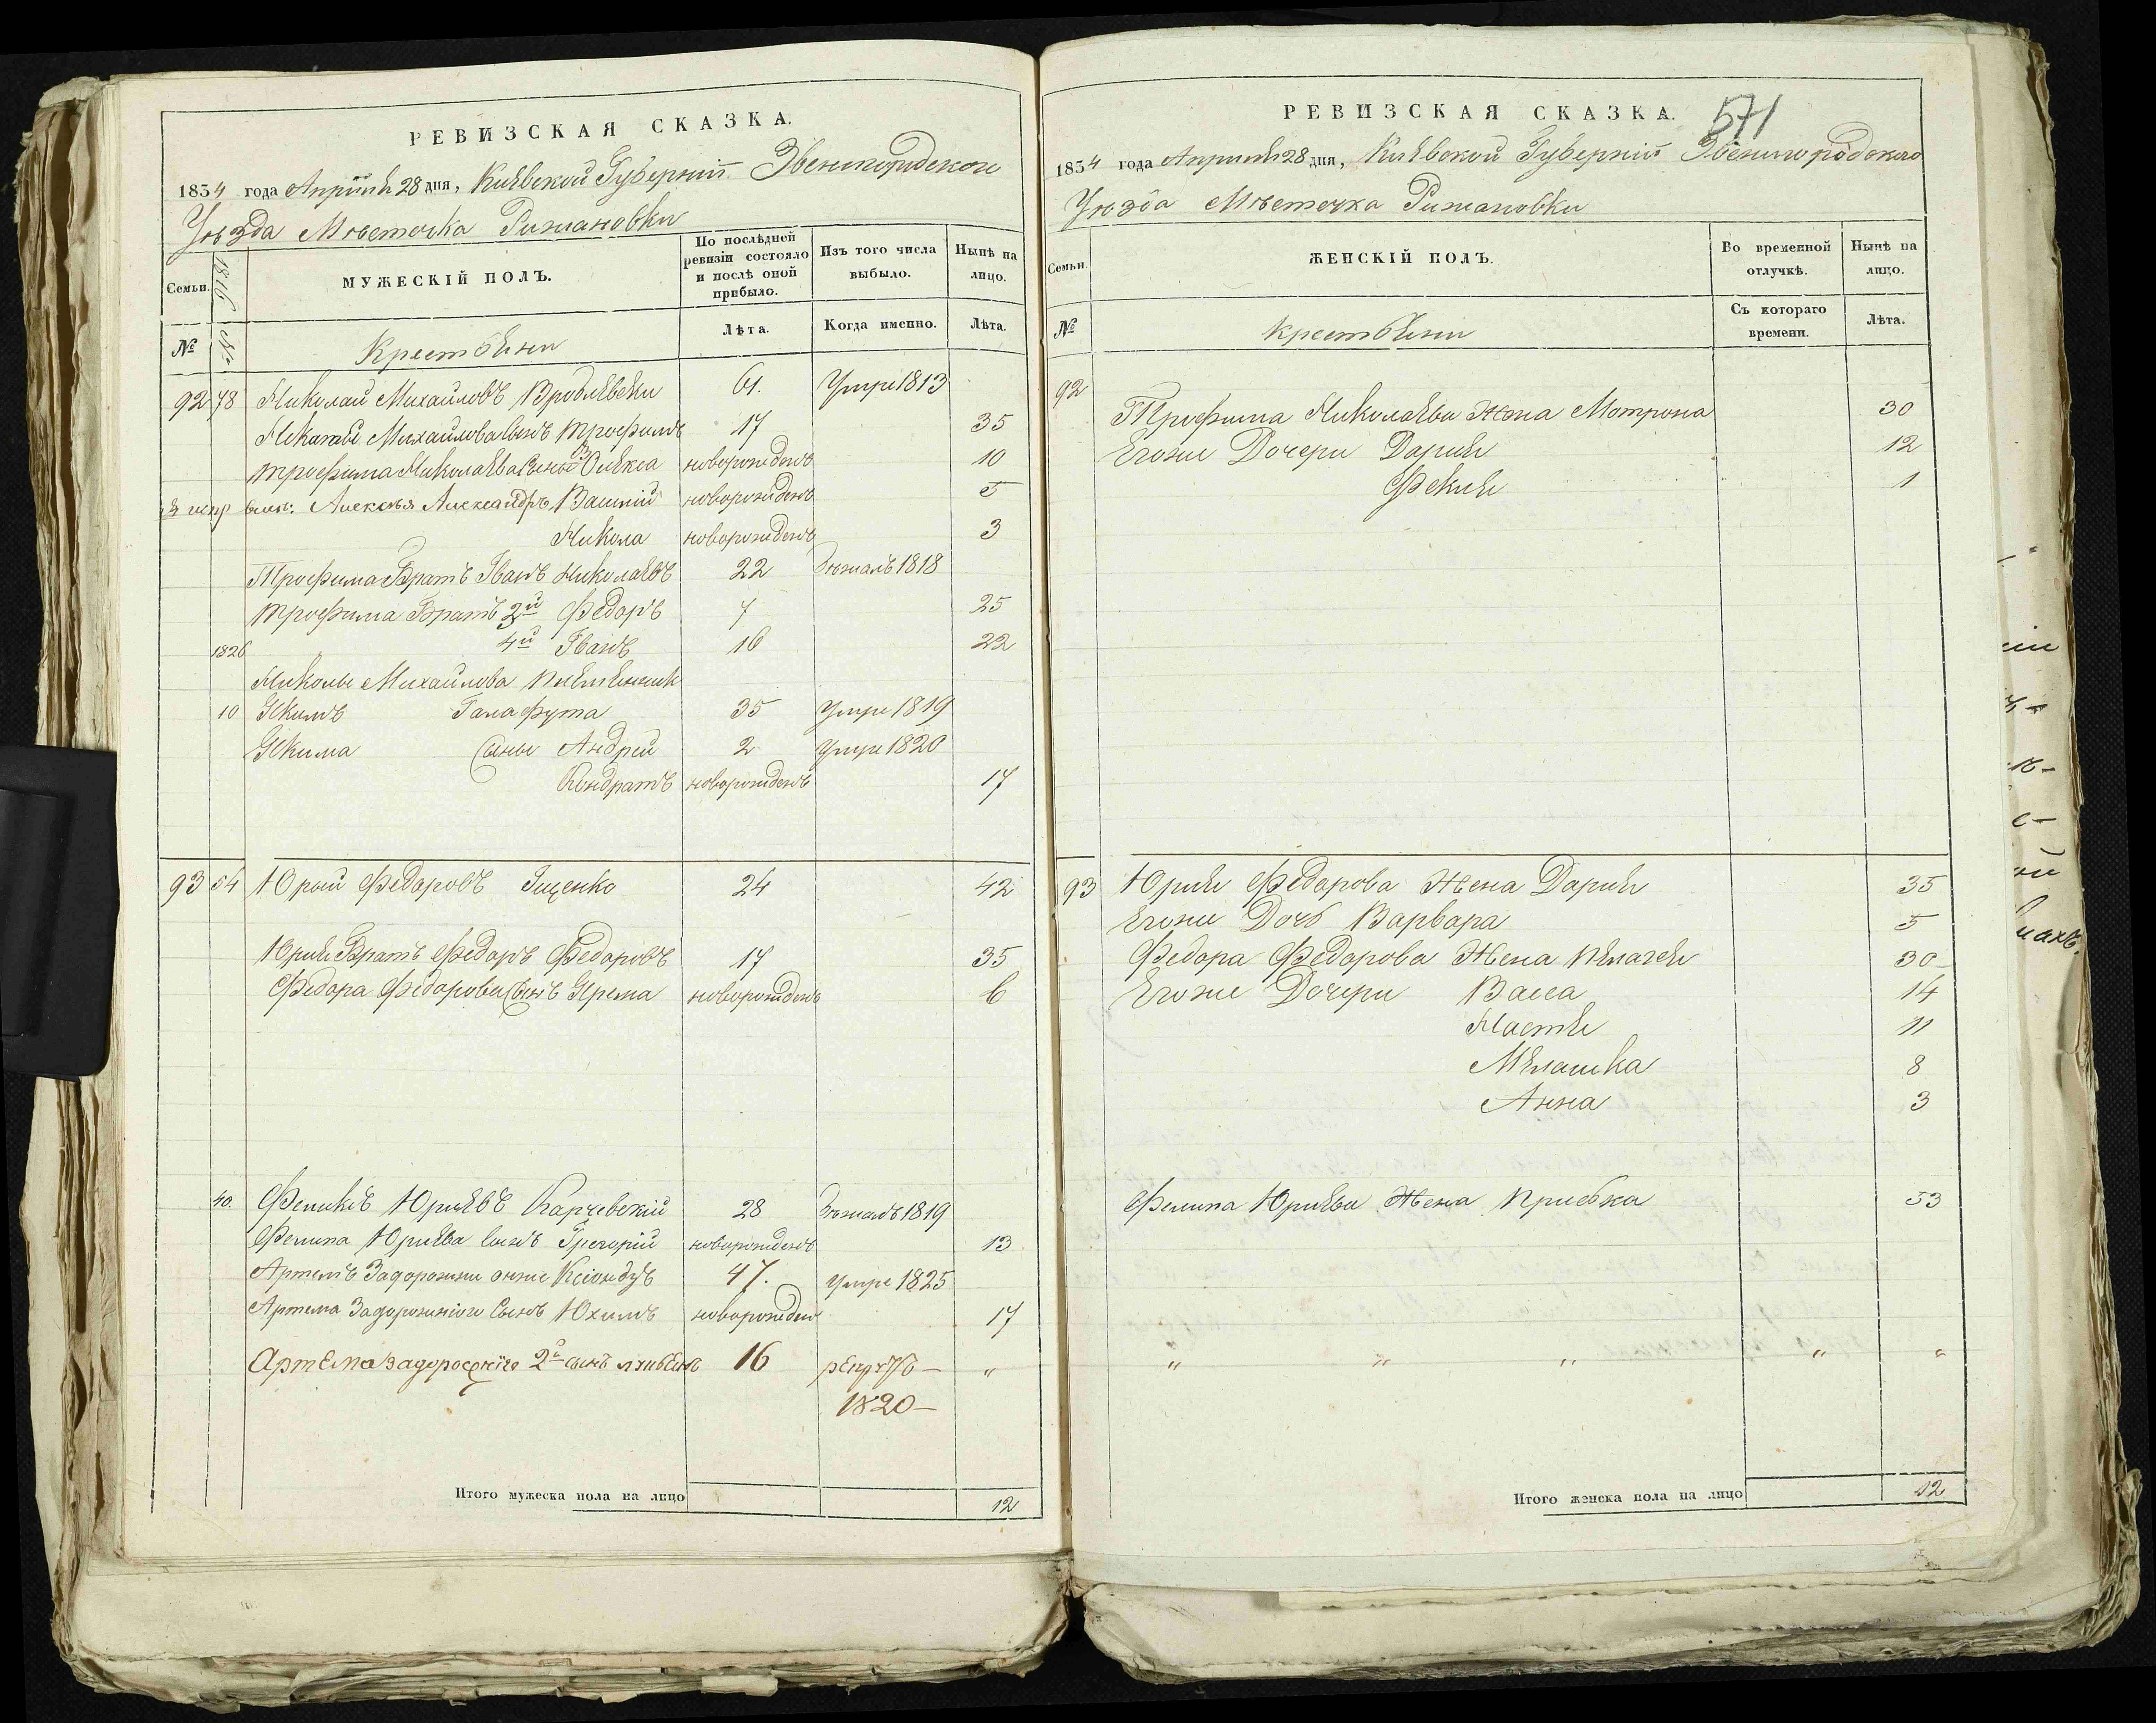 РЕВИЗСКАЯ СКАЗКА.
1834 года Апрѣля 28 дня, Киѣвской Губернии Звенигородскои
Уѣзда Мѣстечка Рижановки
Семьи. 1816 МУЖЕСКІЙ ПОЛЪ. По послѣдней ревизіи состояло и послѣ оной прибыло. Изъ того числа выбыло. Нынѣ на лицо.
№ № Крестьяни Лѣта. Когда именно. Лѣта.
92 78 Николай Михайловъ 61. Умре 1813
Михайлова Сынъ Трофимъ 17 35
Трофима Николаева Сыны Олекса новорожденъ 10
Александръ Василій новорожденъ 5
Никола новорожденъ 3
Трофима Братъ Иванъ Николаевъ 22 Бѣжалъ 1818
Трофима Братъ 3й Федоръ 7 25
1826 4й Иванъ 16 22
Николы Михайлова племянник
10 Якимъ Галафута 35 Умре 1819
Якима Сыны Андрей 2 Умре 1820
Кондратъ новорожденъ 17
93 54 Юрый Федоровъ Іщенко 24 42
Юрия Братъ Федоръ Федоровъ 17 35
Федора Федорова Сынъ Ярема новорожденъ 6
40. Юриевъ Карчевский 28 Бѣжалъ 1819
Филипа Юриева сынъ Григорій новорожденъ 13
Артемъ Задорожни онже 47. Умре 1825
Артема Задорожнього Сынъ Юхимъ новорожден 17
Артема Задорожнѣго 2й сынъ 16 рекрутъ — "
1820 —
Итого мужеска пола на лицо 12
РЕВИЗСКАЯ СКАЗКА. 571
1834 года Апрѣля 28 дня, Киѣвской Губерніи Звенигородского
Уѣзда Мѣстечка Рижановки
Семьи. ЖЕНСКІЙ ПОЛЪ. Во временной отлучкѣ. Нынѣ на лицо.
№ крестьяни Съ котораго времени. Лѣта.
92
Трофима Николаева Жена Мотрона 30
Егоже Дочери Дария 12
Фекия 1
93 Юрия Федорова Жена Дария 35
Егоже Дочь Варвара 5
Федора Федорова Жена Пелагея 30
Егоже Дочери Васса 14
Настя 11
Мелашка 8
Анна 3
Филипа Юриева Жена Приська 53
" " " " "
Итого женска пола на лицо 12